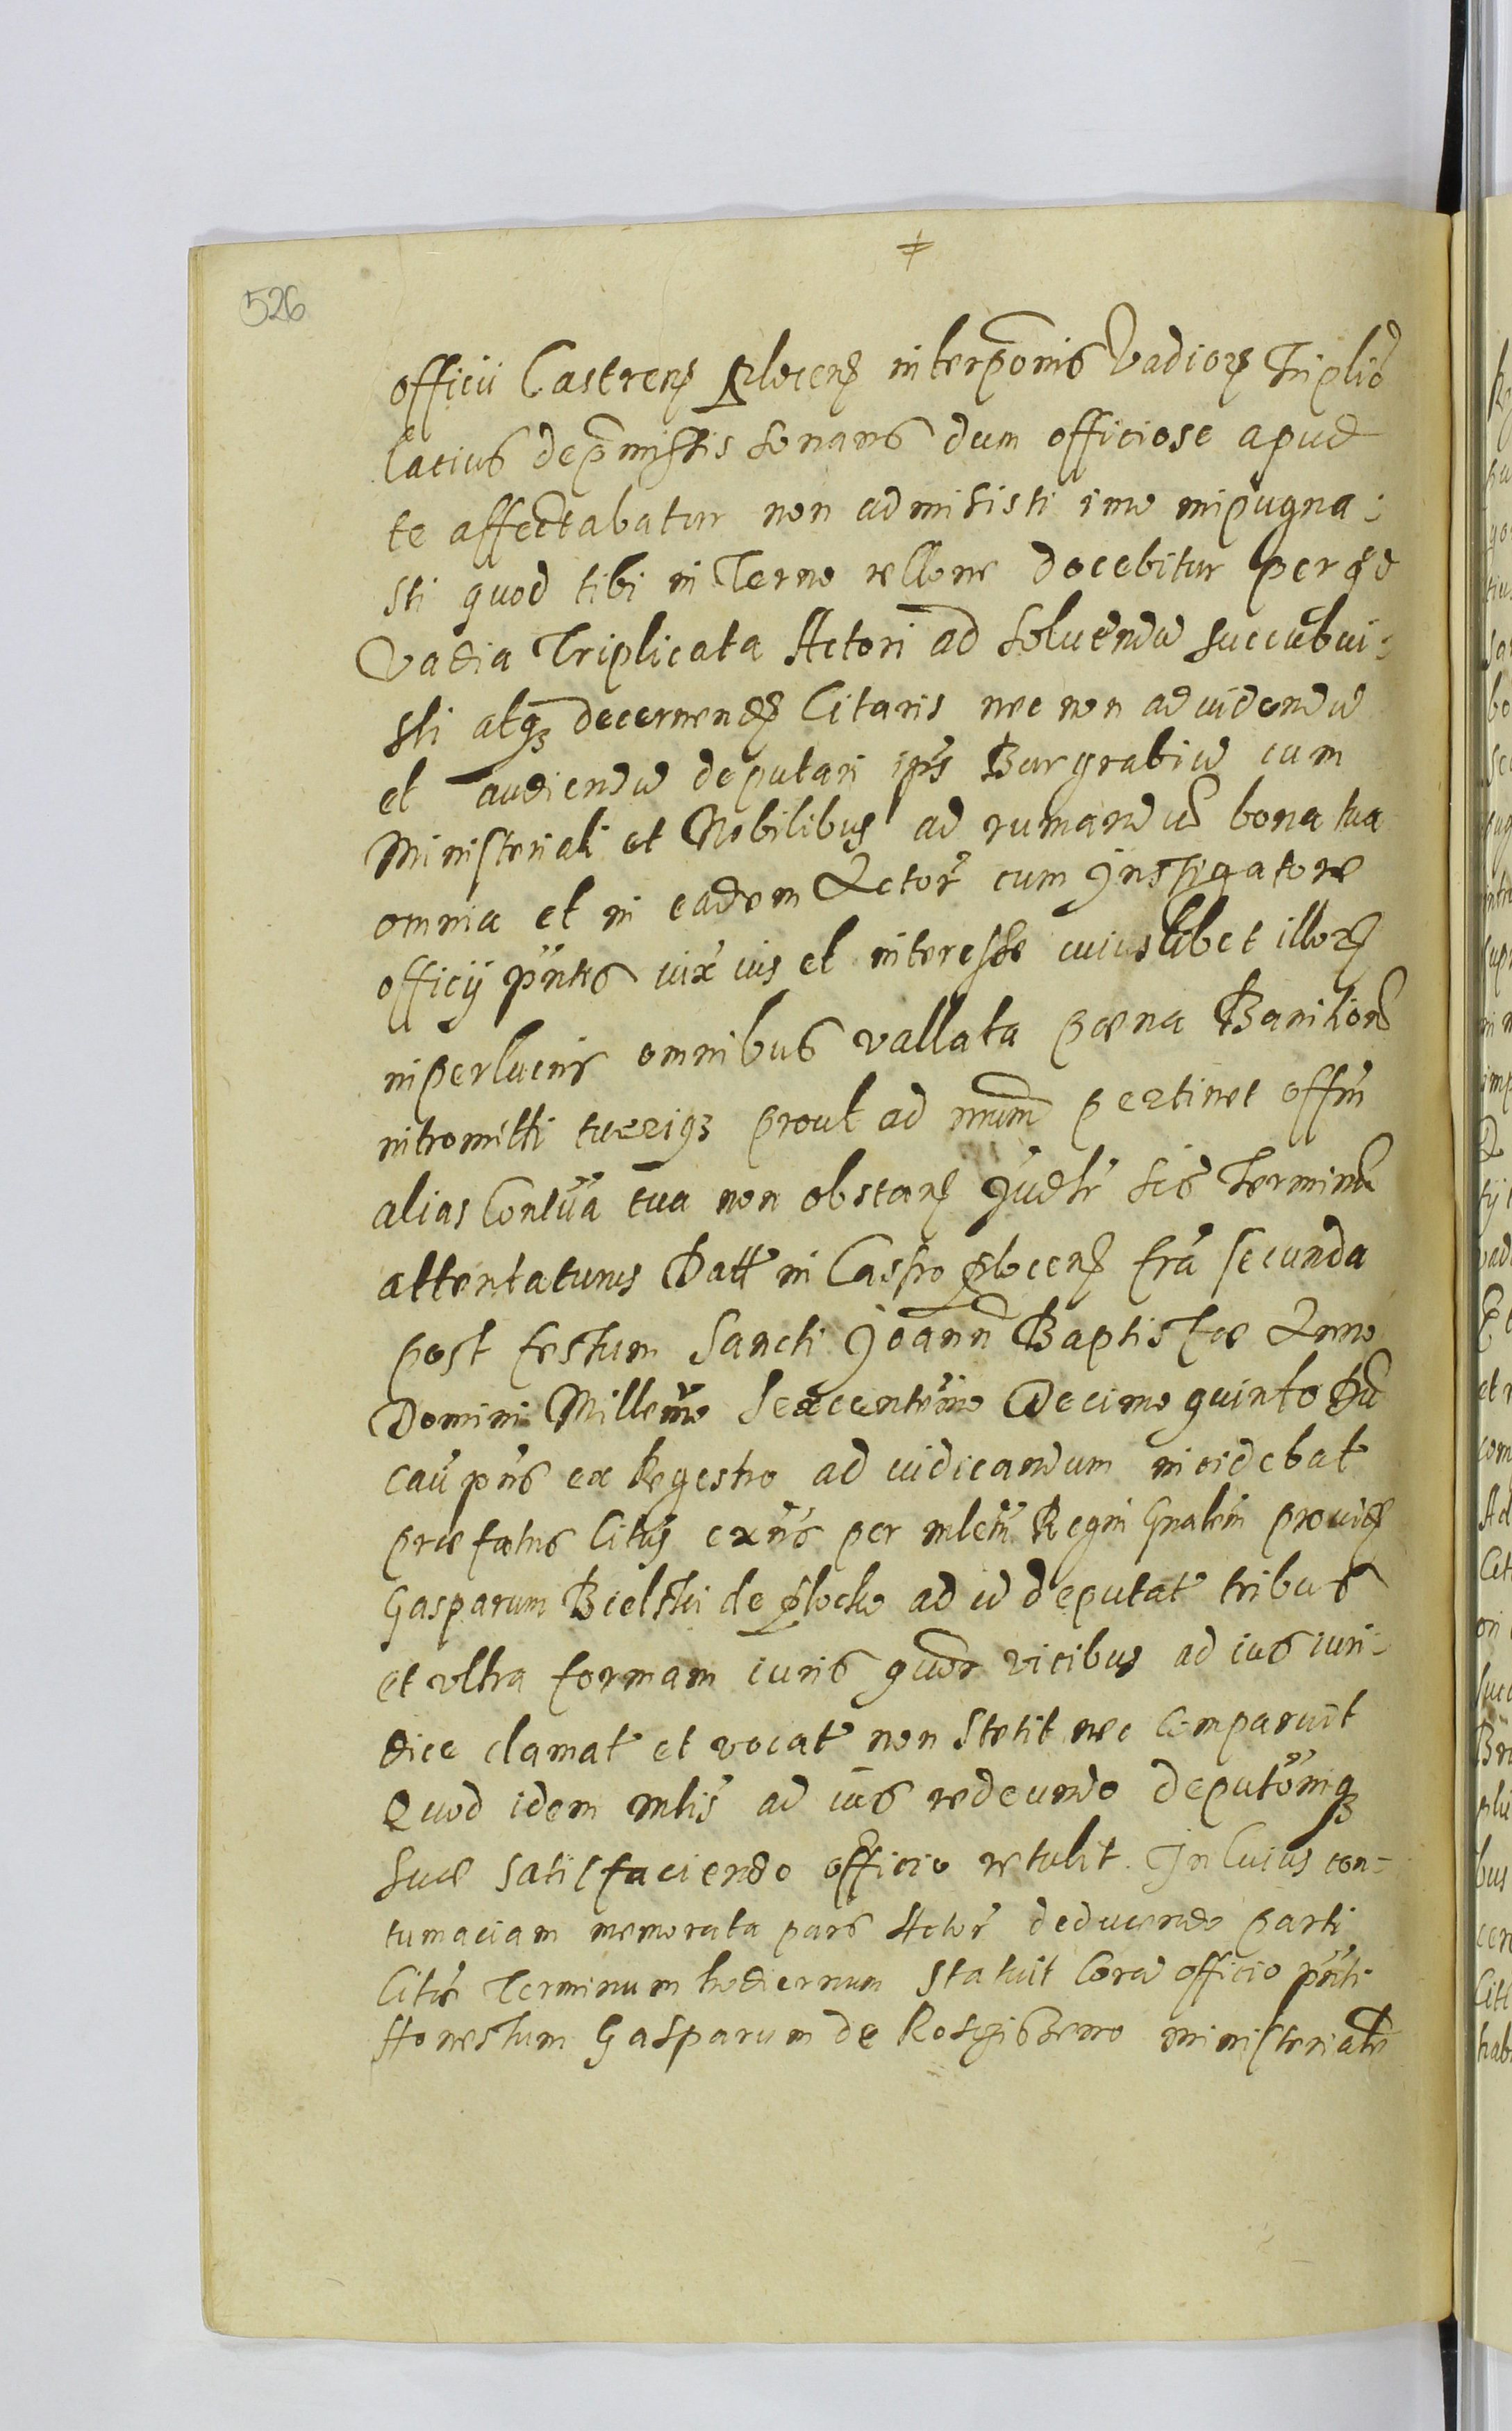 526
officii Castren̄ Plocen̄ interponis Vadior̄ Triplic̄
latius de p̄missis sonans dum officiose apud
te affectabatur non admisisti imo inpugna-
sti quod tibi in Terno rellone docebitur per qd
Vadia Triplicata Actori ad soluendū succubui-
sti atq decernend̄ Citaris nec non ad uidendū
et audiendū deputari ip̄s Burgrabiū cum
Ministeriali et Nobilibus ad rumandū bona tua
omnia et in eadem Actor̄ cum Instigatore
officij p̄ntis iux ius et interesse cuiuslibet illor̄
in perlucris omnibus vallata poena Banition̄
intromitti tueriq prout ad nrum pertinet offm̄
alias Contua tua non obstan̄ Judtr̄ scō Terminū
attentaturus Datt in Castro Plocen̄ fra secunda
post festum Sancti Joann̄ Baptistae Anno
Domini Millemo Sexcentemo Decimo quinto Dū
cau p̄ns ex Regestro ad iudicandum incidebat
praefatus Citus ex n̄s per mlem Regni Gnalem prouid̄
Gasparum Bielski de Plocko ad id deputat̄ tribus
et vltra formam iuris quor vicibus ad ius iuri-
dice clamat̄ et vocat̄ non stetit nec Comparuit
Quod idem mlis ad ius redeundo deputoniq
suae satisfaciendo officio retulit. In Cuius con-
tumaciam memorata pars Actor̄ deducendo parti
Citae Terminum hodiernum statuit Corā officio p̄nti
Honestum Gasparum de Rosgiszewo ministerialē